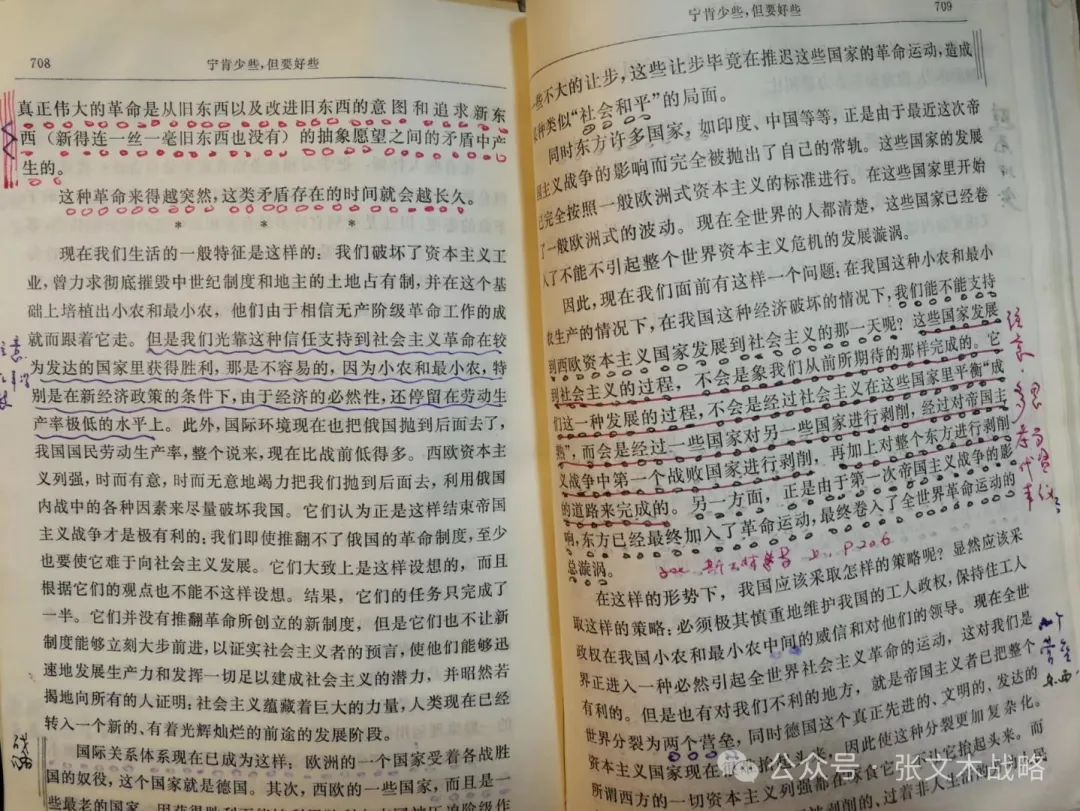 708
宁肯少些，但要好些
真正伟大的革命是从旧东西以及改进旧东西的意图和追求新东
西（新得连一丝一毫旧东西也没有）的抽象愿望之间的矛盾中产
生的。
这种革命来得越突然，这类矛盾存在的时间就会越长久。
* * *
现在我们生活的一般特征是这样的：我们破坏了资本主义工
业，曾力求彻底摧毁中世纪制度和地主的土地占有制，并在这个基
础上培植出小农和最小农，他们由于相信无产阶级革命工作的成
就而跟着它走。但是我们光靠这种信任支持到社会主义革命在较
为发达的国家里获得胜利，那是不容易的，因为小农和最小农，特
别是在新经济政策的条件下，由于经济的必然性，还停留在劳动生
产率极低的水平上。此外，国际环境现在也把俄国抛到后面去了，
我国国民劳动生产率，整个说来，现在比战前低得多。西欧资本主
义列强，时而有意，时而无意地竭力把我们抛到后面去，利用俄国
内战中的各种因素来尽量破坏我国。它们认为正是这样结束帝国
主义战争才是极有利的：我们即使推翻不了俄国的革命制度，至少
也要使它难于向社会主义发展。它们大致上是这样设想的，而且
根据它们的观点也不能不这样设想。结果，它们的任务只完成了
一半。它们并没有推翻革命所创立的新制度，但是它们也不让新
制度能够立刻大步前进，以证实社会主义者的预言，使他们能够迅
速地发展生产力和发挥一切足以建成社会主义的潜力，并昭然若
揭地向所有的人证明：社会主义蕴藏着巨大的力量，人类现在已经
转入一个新的、有着光辉灿烂的前途的发展阶段。
国际关系体系现在已成为这样：欧洲的一个国家受着各战胜
国的奴役，这个国家就是德国。其次，西欧的一些国家，而且是一
些最老的国家，因获得胜利
宁肯少些，但要好些
709
些不大的让步，这些让步毕竟在推迟这些国家的革命运动，造成
种类似“社会和平”的局面。
同时东方许多国家，如印度、中国等等，正是由于最近这次帝
国主义战争的影响而完全被抛出了自己的常轨。这些国家的发展
已完全按照一般欧洲式资本主义的标准进行。在这些国家里开始
了一般欧洲式的波动。现在全世界的人都清楚，这些国家已经卷
入了不能不引起整个世界资本主义危机的发展漩涡。
因此，现在我们面前有这样一个问题：在我国这种小农和最小
农生产的情况下，在我国这种经济破坏的情况下，我们能不能支持
到西欧资本主义国家发展到社会主义的那一天呢？这些国家发展
到社会主义的过程，不会是象我们从前所期待的那样完成的。它
们这一种发展的过程，不会是经过社会主义在这些国家里平衡“成
熟”，而会是经过一些国家对另一些国家进行剥削，经过对帝国主
义战争中第一个战败国家进行剥削，再加上对整个东方进行剥削
的道路来完成的。另一方面，正是由于第一次帝国主义战争的影
响，东方已经最终加入了革命运动，最终卷入了全世界革命运动的
总漩涡。
P206
在这样的形势下，我国应该采取怎样的策略呢？显然应该采
取这样的策略：必须极其慎重地维护我国的工人政权，保持住工人
政权在我国小农和最小农中间的威信和对他们的领导。现在全世
界正进入一种必然引起全世界社会主义革命的运动，这对我们是
有利的。但是也有对我们不利的地方，就是帝国主义者已把整个
世界分裂为两个营垒，同时德国这个真正先进的、文明的、发达的
资本主义国家现在 因此使这种分裂更加复杂化。
所谓西方的一切资本主义列强都在 不让它抬起头来。而
公众号·张文木战略